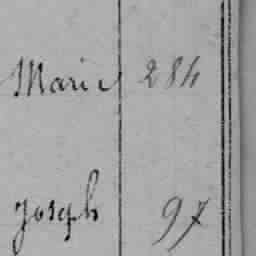 Marie 284
Joseph 97